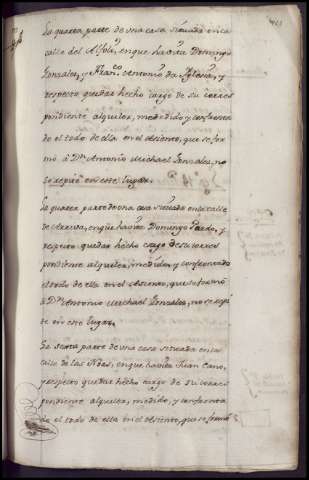 La quarta parte de una casa situada en la
calle del Alfolí, en que havita Domingo
Gonzales, y Fran.co Antonio da Yglesia, y
respecto quedar hecho cargo de su corres
pondiente alquiler, medido, y confrontaz.n
de el todo de ella en el asiento, que se for
mó â D.n Antonio Michael Gonzales, no
se repite en este lugar.
La quarta parte de una casa situada en la calle
de Arriva, en que havita Domingo Pardo, y
respecto quedar hecho cargo de su corres
pondiente alquiler, medida, y confrontaz.n de
el todo de ella en el asiento, que se formó
â D.n Antonio Michael Gonzales, no se repi
te en este lugar.
La sexta parte de una casa situada en la
calle de las, en que havita Juan Cano,
y respecto quedar hecho cargo de su corres
pondiente alquiler, medido, y confronta
de el todo de ella en el asiento, que se formó